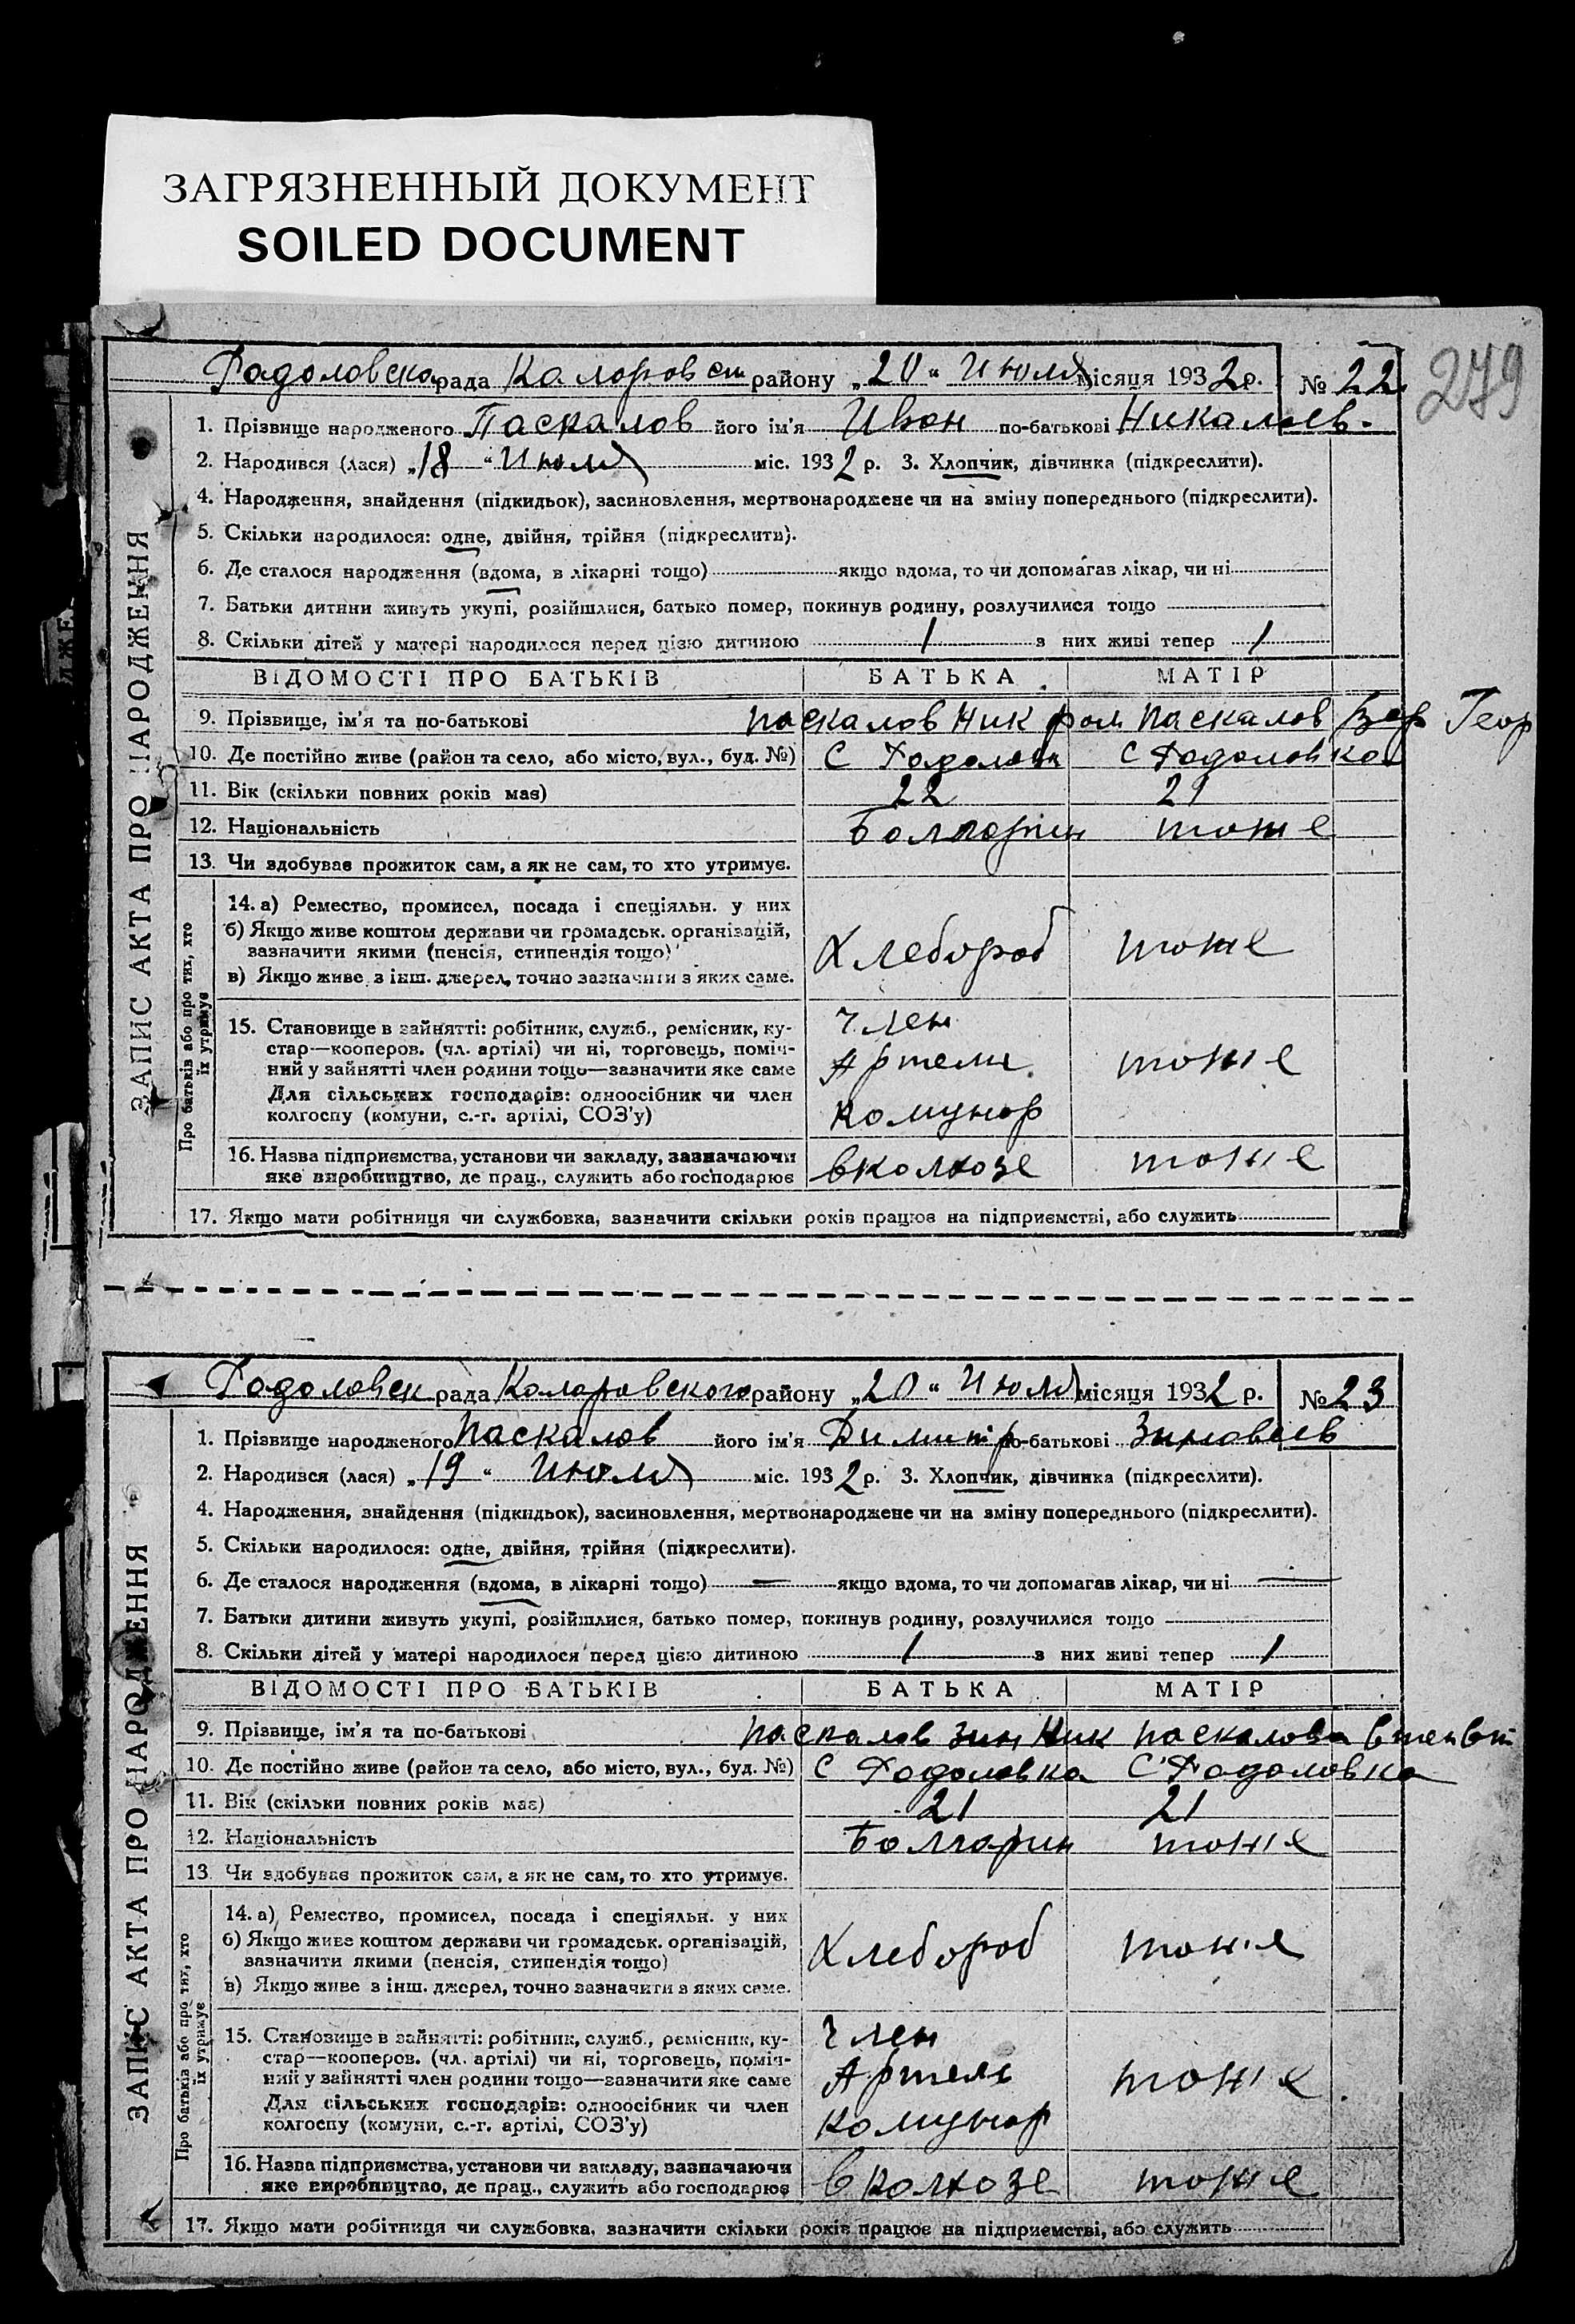 ЗАГРЯЗНЕННЫЙ ДОКУМЕНТ
SOILED DOCUMENT
279
Радоловска рада Каларовск району „20“ Июля місяця 1932 р. № 22
1. Прізвище народженого Паскалов його ім'я Иван по-батькові Николаев.
2. Народився (лася) „18“ Июля міс. 1932 р. 3. Хлопчик, дівчинка (підкреслити).
4. Народження, знайдення (підкидьок), засиновлення, мертвонароджене чи на зміну попереднього (підкреслити).
5. Скільки народилося: одне, двійня, трійня (підкреслити).
6. Де сталося народження (вдома, в лікарні тощо) якщо вдома, то чи допомагав лікар, чи ні
7. Батьки дитини живуть укупі, розійшлися, батько помер, покинув родину, розлучилися тощо
8. Скільки дітей у матері народилося перед цією дитиною 1 з них живі тепер 1
ВІДОМОСТІ ПРО БАТЬКІВ БАТЬКА МАТІР
9. Прізвище, ім'я та по-батькові Паскалов Ник Паскалов Геор
10. Де постійно живе (район та село, або місто, вул., буд. №) С С Радоловка
11. Вік (скільки повних років має) 22 21
12. Національність Болгарин тоже
13. Чи здобуває прожиток сам, а як не сам, то хто утримує.
14. а) Ремество, промисел, посада і спеціяльн. у них
б) Якщо живе коштом держави чи громадськ. організацій,
зазначити якими (пенсія, стипендія тощо)
в) Якщо живе з інш. джерел, точно зазначити з яких саме.
Хлебороб тоже
15. Становище в зайнятті: робітник, служб., ремісник, ку-
стар—кооперов. (чл. артілі) чи ні, торговець, поміч-
ний у зайнятті член родини тощо—зазначити яке саме
Для сільських господарів: одноосібник чи член
колгоспу (комуни, с.-г. артілі, СОЗ'у)
член
Артели тоже
комунар
16. Назва підприємства, установи чи закладу, зазначаючи
яке виробництво, де прац., служить або господарює
в колхозе тоже
17. Якщо мати робітниця чи службовка, зазначити скільки років працює на підприємстві, або служить
ЗАПИС АКТА ПРО НАРОДЖЕННЯ
Про батьків або про тих, хто
їх утримує
Радоловск рада Коларовского району „20“ Июля місяця 1932 р. № 23
1. Прізвище народженого Паскалов його ім'я Димитр по-батькові Зиновеев
2. Народився (лася) „19“ Июля міс. 1932 р. 3. Хлопчик, дівчинка (підкреслити).
4. Народження, знайдення (підкидьок), засиновлення, мертвонароджене чи на зміну попереднього (підкреслити).
5. Скільки народилося: одне, двійня, трійня (підкреслити).
6. Де сталося народження (вдома, в лікарні тощо) — якщо вдома, то чи допомагав лікар, чи ні —
7. Батьки дитини живуть укупі, розійшлися, батько помер, покинув родину, розлучилися тощо
8. Скільки дітей у матері народилося перед цією дитиною 1 з них живі тепер 1
ВІДОМОСТІ ПРО БАТЬКІВ БАТЬКА МАТІР
9. Прізвище, ім'я та по-батькові Паскалов Зин Ник Паскалова
10. Де постійно живе (район та село, або місто, вул., буд. №) С Радоловка С Радоловка
11. Вік (скільки повних років має) 21 21
12. Національність Болгарин тоже
13. Чи здобуває прожиток сам, а як не сам, то хто утримує.
14. а) Ремество, промисел, посада і спеціяльн. у них
б) Якщо живе коштом держави чи громадськ. організацій,
зазначити якими (пенсія, стипендія тощо)
в) Якщо живе з інш. джерел, точно зазначити з яких саме.
Хлебороб тоже
15. Становище в зайнятті: робітник, служб., ремісник, ку-
стар—кооперов. (чл. артілі) чи ні, торговець, поміч-
ний у зайнятті член родини тощо—зазначити яке саме
Для сільських господарів: одноосібник чи член
колгоспу (комуни, с.-г. артілі, СОЗ'у)
член
Артель тоже
комунар
16. Назва підприємства, установи чи закладу, зазначаючи
яке виробництво, де прац., служить або господарює
в колхозе тоже
17. Якщо мати робітниця чи службовка, зазначити скільки років працює на підприємстві, або служить
ЗАПИС АКТА ПРО НАРОДЖЕННЯ
Про батьків або про тих, хто
їх утримує